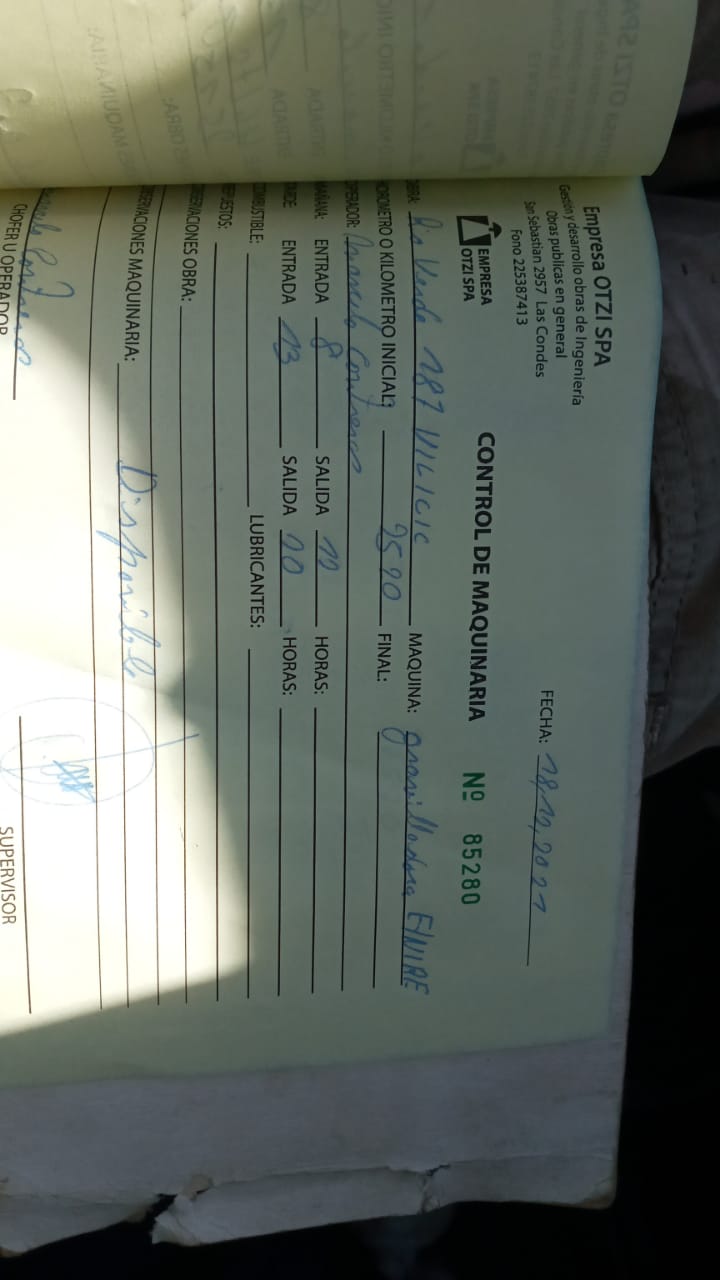 Empresa OTZI SPA
Gestión y desarrollo obras de Ingeniería
Obras publicas en general
San Sebastian 2957 Las Condes
Fono 225387413
FECHA: 18,12,2021
EMPRESA
OTZI SPA
CONTROL DE MAQUINARIA Nº 85280
OBRA: Rio Verde 187 VILICIC MAQUINA: gravilladora E/NIRE
HOROMETRO O KILOMETRO INICIAL: 2520 FINAL:
OPERADOR: Marcelo Contreras
MAÑANA: ENTRADA 8 SALIDA 12 HORAS:
TARDE: ENTRADA 13 SALIDA 20 HORAS:
COMBUSTIBLE: LUBRICANTES:
REPUESTOS:
OBSERVACIONES OBRA:
OBSERVACIONES MAQUINARIA: Disponible
Marcelo Contreras
CHOFER U OPERADOR SUPERVISOR